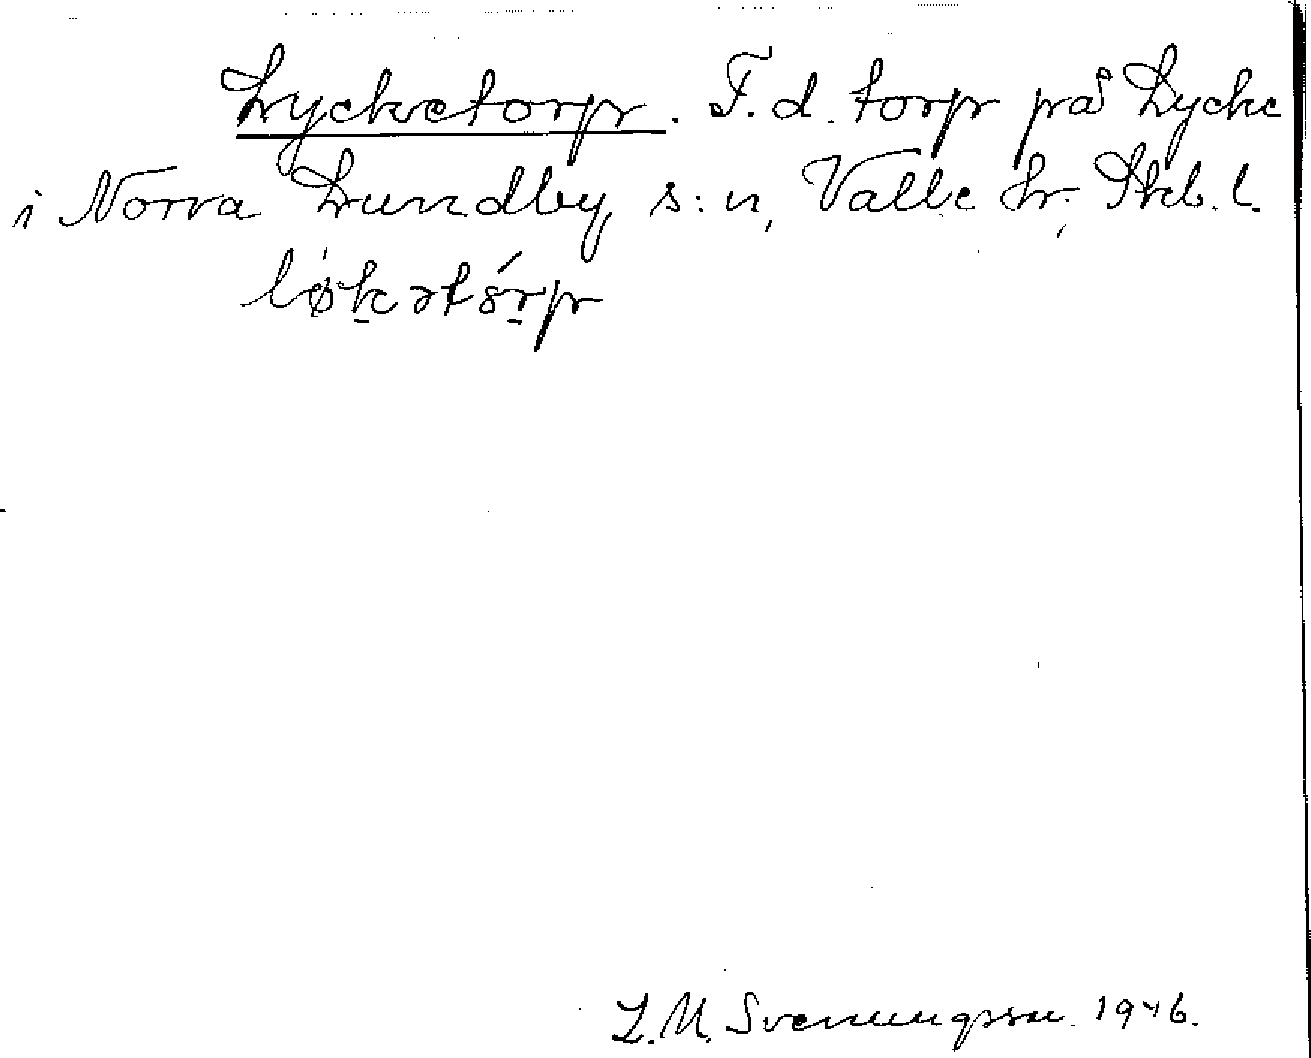 Lycketorp. F. d. torp på Lycke
i Norra Lundby s:n, Valle hr. Skb. l.
L. M. Svenungsson 1946.